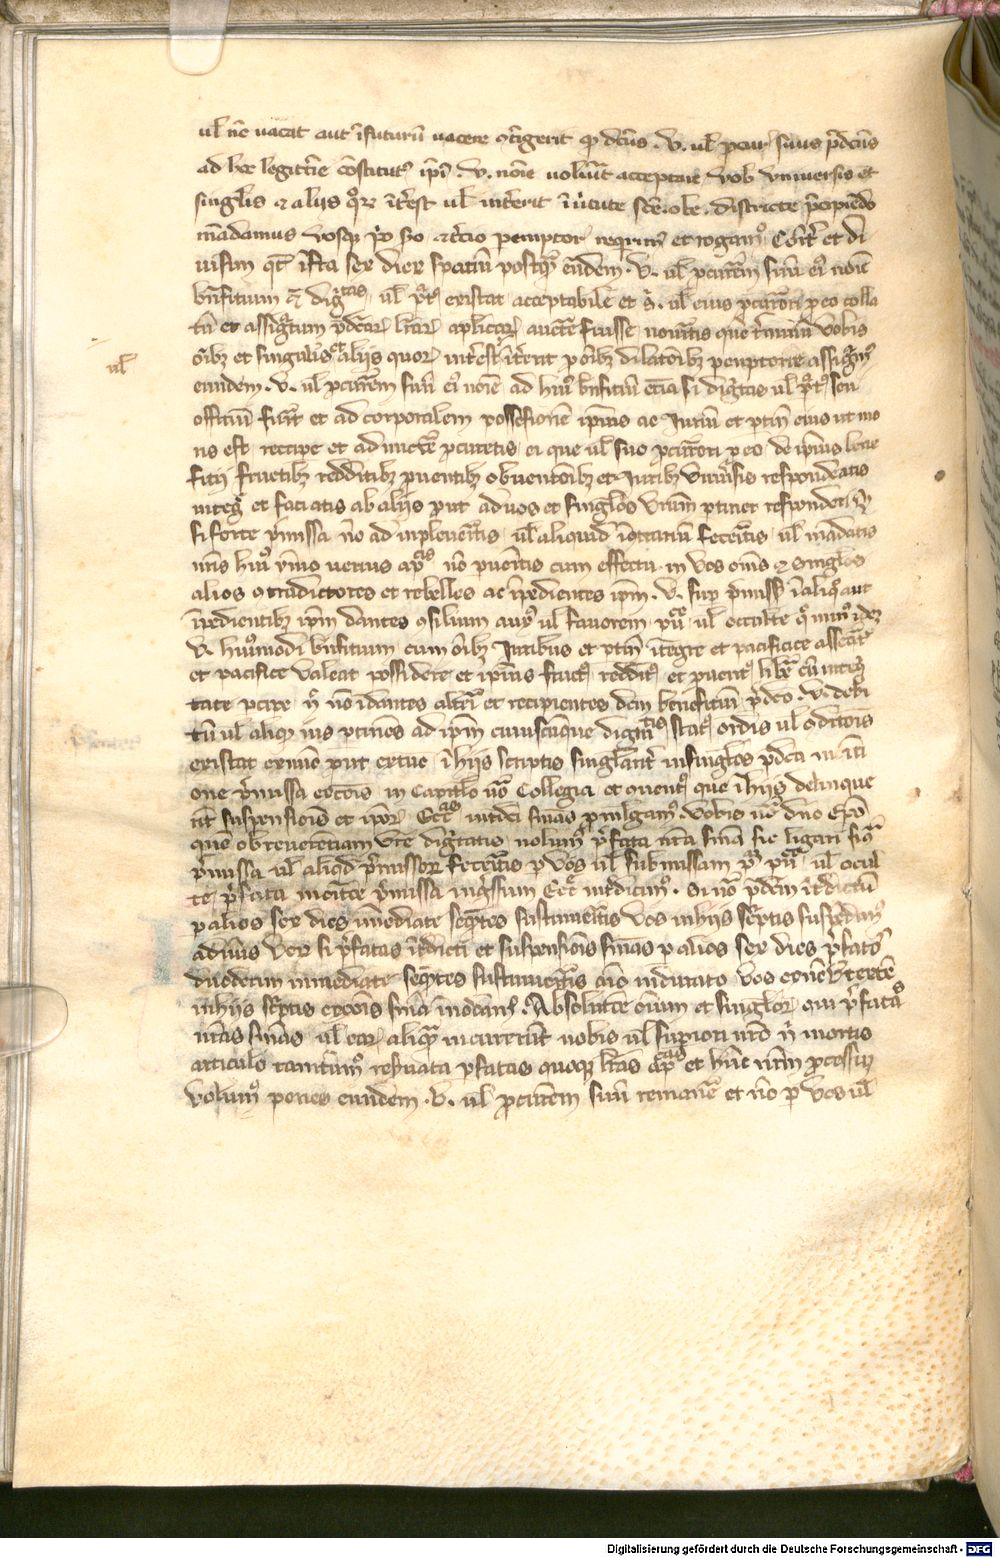 ul nc̄ uacat aut īfuturū uacare ꝯtigerit qͥ dc̄us .V. ul pcur̄ suus p̄dc̄us
ad hec legittīe ꝯstitutꝰ ip̄i .V. noīe uolūit acceptare vob vniuersis et
singul̄is ⁊ alijs qͦꝝ īterest ul int̄erit ī uirtute sc̄e obe . districte p̄cipiēdo
mādamus vosqꝫ pͦ scͦo ⁊ tcͥo pemptor̄ requirimꝰ et rogamꝰ
infra sex dierꝝ spatiū postqͣ eūdem .V. ul pcūrem suū eiꝰ noīe
bn̄ficium dig̅tas ul p̄tꝰ existat acceptabile et ul eius pcūtori p eo colla
tū et assigtum p̄dc̄aꝝ lr̄aꝝ apl̄icaꝝ auctē fuisse nouitis que t̄minū vobis
oībꝫ et singul̄is et alijs quoꝝ int̄est ul int̄erit p oībꝫ dilatoībꝫ peremptorie assig̅mꝰ
eundem .V. ul pcūrem suū eiꝰ noīe ad huiꝰ bn̄ficiū etia si dig̅tas ul p̄tꝰ seu
offitiū fuit et ad corporalem possessionē ip̄ius ac Iuriū et ptīn eius ut mo
ris est recipe et admictē pcuretis ei que ul suo pcūtori p eo de ip̄ius bene
fitij fructibꝫ redditibꝫ puentibꝫ obuentōibꝫ et Iuribꝫ vniuersis respondeatis
integͤ et faciatis ab alijs put ad uos et singl̄os vrūm ptinet responderi
Si forte p̄missa nō ad inpleuitis ul aliquid īꝯtrariū feceritis ul mādatis
nr̄is huiꝰ ymo uerius ap̄cis nō pueritis cum effectu in vos oms ⁊ singl̄os
alios ꝯtradictores et rebelles ac īpedientes ip̄m .V. sup p̄missis ī aliqͦ aut
īpedientibꝫ ip̄m dantes ꝯsilium auxꝰ ul fauorem puͤ ul occulte qͦ minꝰ idez
V. huiꝰmodi bn̄ficium cum oībꝫ Iuribus et ptīn ītegre et pacifice assequͥ
et pacifice ualeat possidere et ip̄ius fructꝰ redditꝰ et puentꝰ libeͤ cū integͥ
tate pcipe nͥ non dantes alteri et recipientes dcm benefitiū p̄dc̄o .V. debi
tū ul aliqͥ ius ptinēs ad ip̄m cuiuscūque digntis statꝰ ordīs ul ꝯditoīs
existat exnūc put extūc ī hijs scriptis singulariͭ in singl̄os p̄dc̄a moniti
one p̄missa excōis in Capitl̄o uͦ Collegia et ꝯuentꝰ que ī hijs delinque
rīt suspensiōis et ipor̄ Ecc̄as intdc̄i sm̄as pmulgamꝰ . Vobis uͦ dno Epō
quē ob reuerentiam vr̄e dig̅tatis nolumꝰ p̄fata nr̄a sm̄a sic ligari siͣ
p̄missa ul aliqͥd p̄missoꝝ feceritis p vos ul submissam pͣꝫ puͤ ul occul
te p̄fata monitōe p̄missa ing̅ssum Ecc̄e int̄dicimꝰ . Si uͦ p̄dcm īt̄dictū
p alios sex dies imediate seq̅tes sustinueritis vos in hijs sc̄ptis suspēdimꝰ
adiūus Veꝝ si p̄fatas īt̄dicti et suspensiōis sm̄as p alios sex dies p̄fatos
duodecim immediate seq̅tes sustinueritis aīo indurato vos exnūc ꝓut extūc
in hijs sc̄ptis excōis sm̄a inodamꝰ . Absolutiōe omium et singuloꝝ qui p̄fatas
nr̄as sm̄as ul eaꝝ aliquͣ incurrerūt nobis ul supiori nr̄o nͥ mortis
articulo tantūmꝰ reseruata p̄fatas quoqꝫ lr̄as ap̄cas et hūc nr̄m pcessū
volumꝰ penes eundem .V. ul pcūrem suū remanēͤ et nō p vos ul
ul